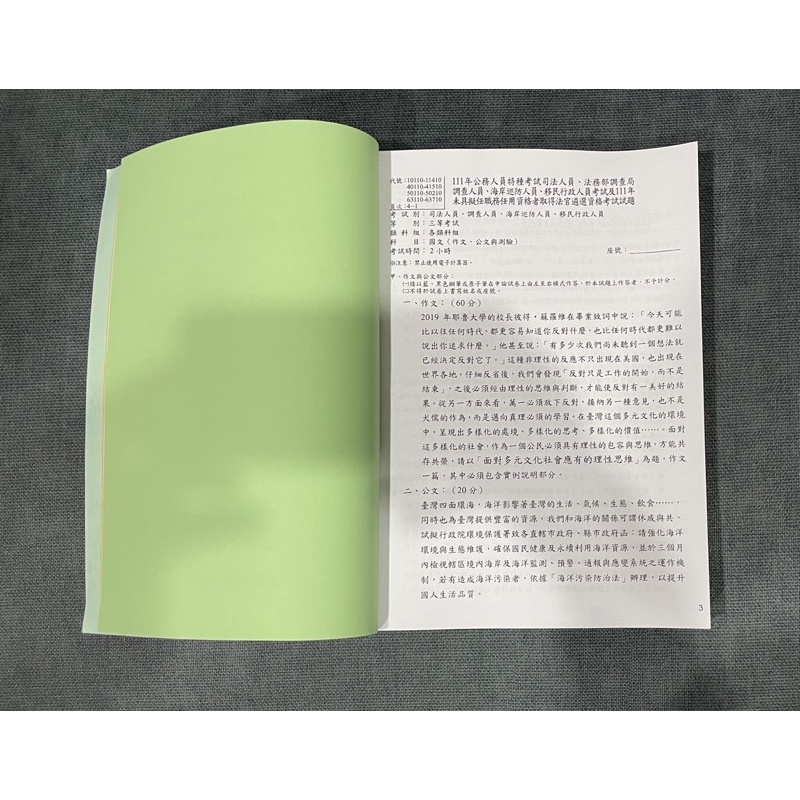 代號：10110-11410
40110-41510
50110-50210
63110-63710
頁次：4-1
111年公務人員特種考試司法人員、法務部調查局
調查人員、海岸巡防人員、移民行政人員考試及111年
未具擬任職務任用資格者取得法官遴選資格考試試題
考試別：司法人員、調查人員、海岸巡防人員、移民行政人員
等別：三等考試
類科組：各類科組
科目：國文（作文、公文與測驗）
考試時間：2小時
座號：
※注意：禁止使用電子計算器。
甲、作文與公文部分：
㈠請以藍、黑色鋼筆或原子筆在申論試卷上由左至右橫式作答，於本試題上作答者，不予計分。
㈡不得於試卷上書寫姓名或座號。
一、作文：（60分）
2019 年耶魯大學的校長彼得‧蘇羅維在畢業致詞中說：「今天可能
比以往任何時代，都更容易知道你反對什麼，也比任何時代都更難以
說出你追求什麼。」他甚至說：「有多少次我們尚未聽到一個想法就
已經決定反對它了。」這種非理性的反應不只出現在美國，也出現在
世界各地。仔細反省後，我們會發現「反對只是工作的開始，而不是
結束」，之後必須經由理性的思維與判斷，才能使反對有一美好的結
果。從另一方面來看，萬一必須放下反對，接納另一種意見，也不是
犬儒的作為，而是邁向真理必須的學習。在臺灣這個多元文化的環境
中，呈現出多樣化的處境、多樣化的思考、多樣化的價值……。面對
這多樣化的社會，作為一個公民必須具有理性的包容與思維，方能共
存共榮，請以「面對多元文化社會應有的理性思維」為題，作文
一篇，其中必須包含實例說明部分。
二、公文：（20分）
臺灣四面環海，海洋影響著臺灣的生活、氣候、生態、飲食……，
同時也為臺灣提供豐富的資源，我們和海洋的關係可謂休戚與共。
試擬行政院環境保護署致各直轄市政府、縣市政府函：請強化海洋
環境與生態維護，確保國民健康及永續利用海洋資源，並於三個月
內檢視轄區境內海岸及海洋監測、預警、通報與應變系統之運作機
制，若有造成海洋污染者，依據「海洋污染防治法」辦理，以提升
國人生活品質。
3